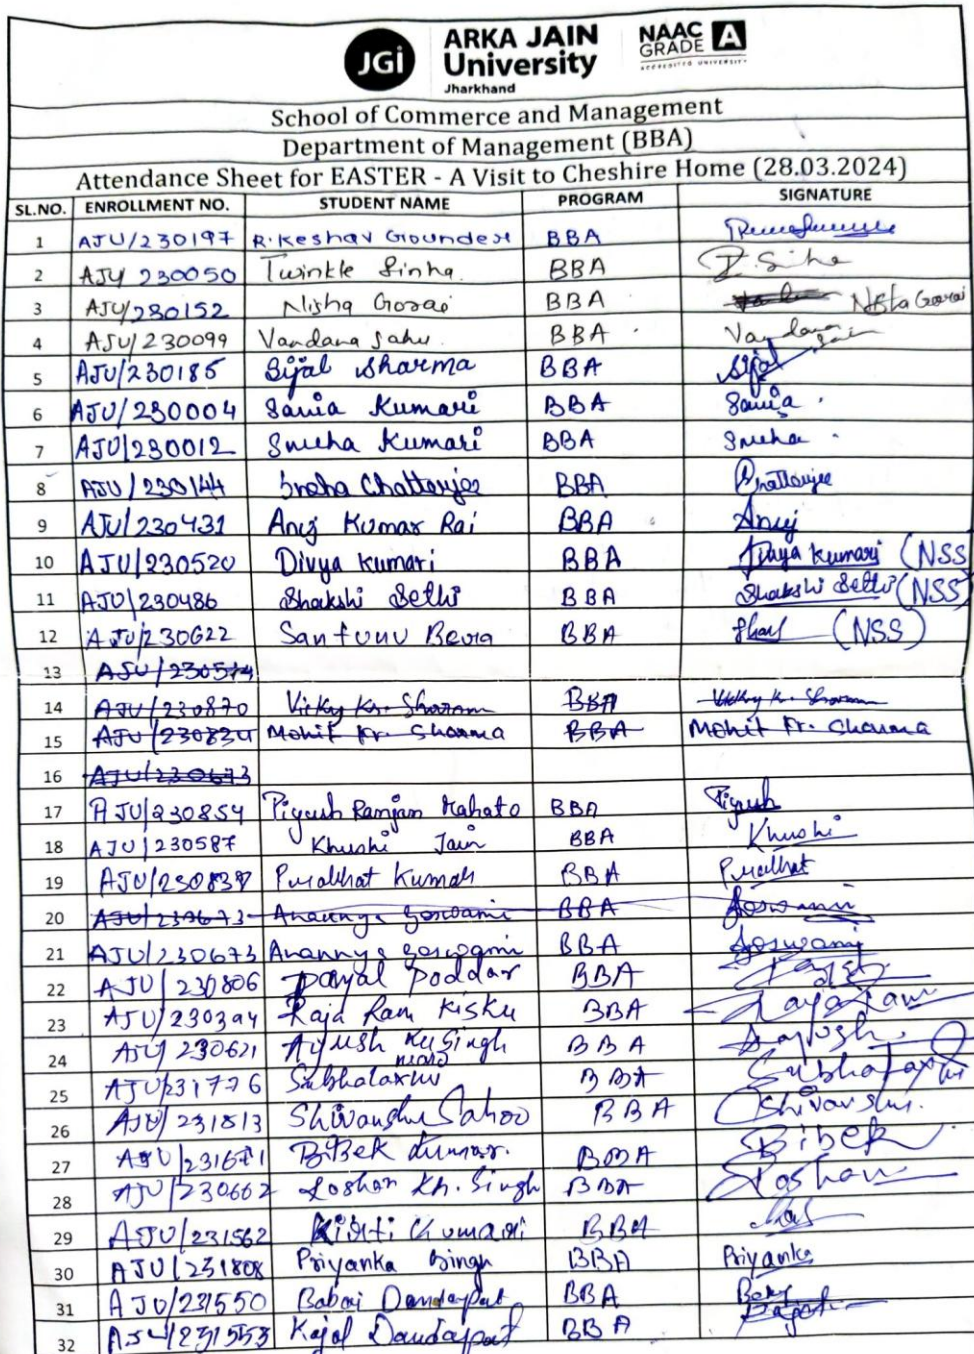 JGi ARKA JAIN University Jharkhand NAAC GRADE A
ACCREDITED UNIVERSITY
School of Commerce and Management
Department of Management (BBA)
Attendance Sheet for EASTER - A Visit to Cheshire Home (28.03.2024)
SL.NO. ENROLLMENT NO. STUDENT NAME PROGRAM SIGNATURE
1 AJU/230197 R. Keshav Gounder BBA
2 AJU/230050 Twinkle Sinha. BBA T. Sinha
3 AJU/230152 Nisha Gorai BBA Nisha Gorai
4 AJU/230099 Vandana Sahu. BBA Vandana
5 AJU/230185 Sijal Sharma BBA Sijal
6 AJU/230004 Sania Kumari BBA Sania.
7 AJU/230012 Sneha Kumari BBA Sneha
8 AJU/230144 Sneha Chatterjee BBA Chatterjee
9 AJU/230431 Anuj Kumar Rai BBA Anuj
10 AJU/230520 Divya Kumari BBA Divya Kumari (NSS)
11 AJU/230486 Shakshi Sethi BBA Shakshi Sethi (NSS)
12 AJU/230622 Santunu Bera BBA (NSS)
13 AJU/230574
14 AJU/230870 Vicky Kr. Sharma BBA Vicky Kr. Sharma
15 AJU/230834 Mohit Kr. Sharma BBA Mohit Kr. Sharma
16 AJU/230673
17 AJU/230854 Piyush Ranjan Mahato BBA Piyush
18 AJU/230587 Khushi Jain BBA Khushi
19 AJU/230838 Prabhat Kumar BBA Prabhat
20 AJU/230673 Anannya Goswami BBA Goswami
21 AJU/230673 Anannya Goswami BBA Goswami
22 AJU/230806 Payal Poddar BBA
23 AJU/230394 Raja Ram Kisku BBA Raja Ram
24 AJU/230621 Ayush Ku Singh BBA Aayush.
25 AJU/231776 Subhalaxmi BBA Subhalaxmi
26 AJU/231813 Shivanshu Sahoo BBA Shivanshu.
27 AJU/231671 Bibek Kumar. BBA Bibek
28 AJU/230662 Roshan Kr. Singh BBA Roshan
29 AJU/231562 Kirti Kumari BBA
30 AJU/231808 Priyanka Singh BBA Priyanka
31 AJU/231550 Babai Dandapat BBA
32 AJU/231553 Kajal Dandapat BBA Kajal